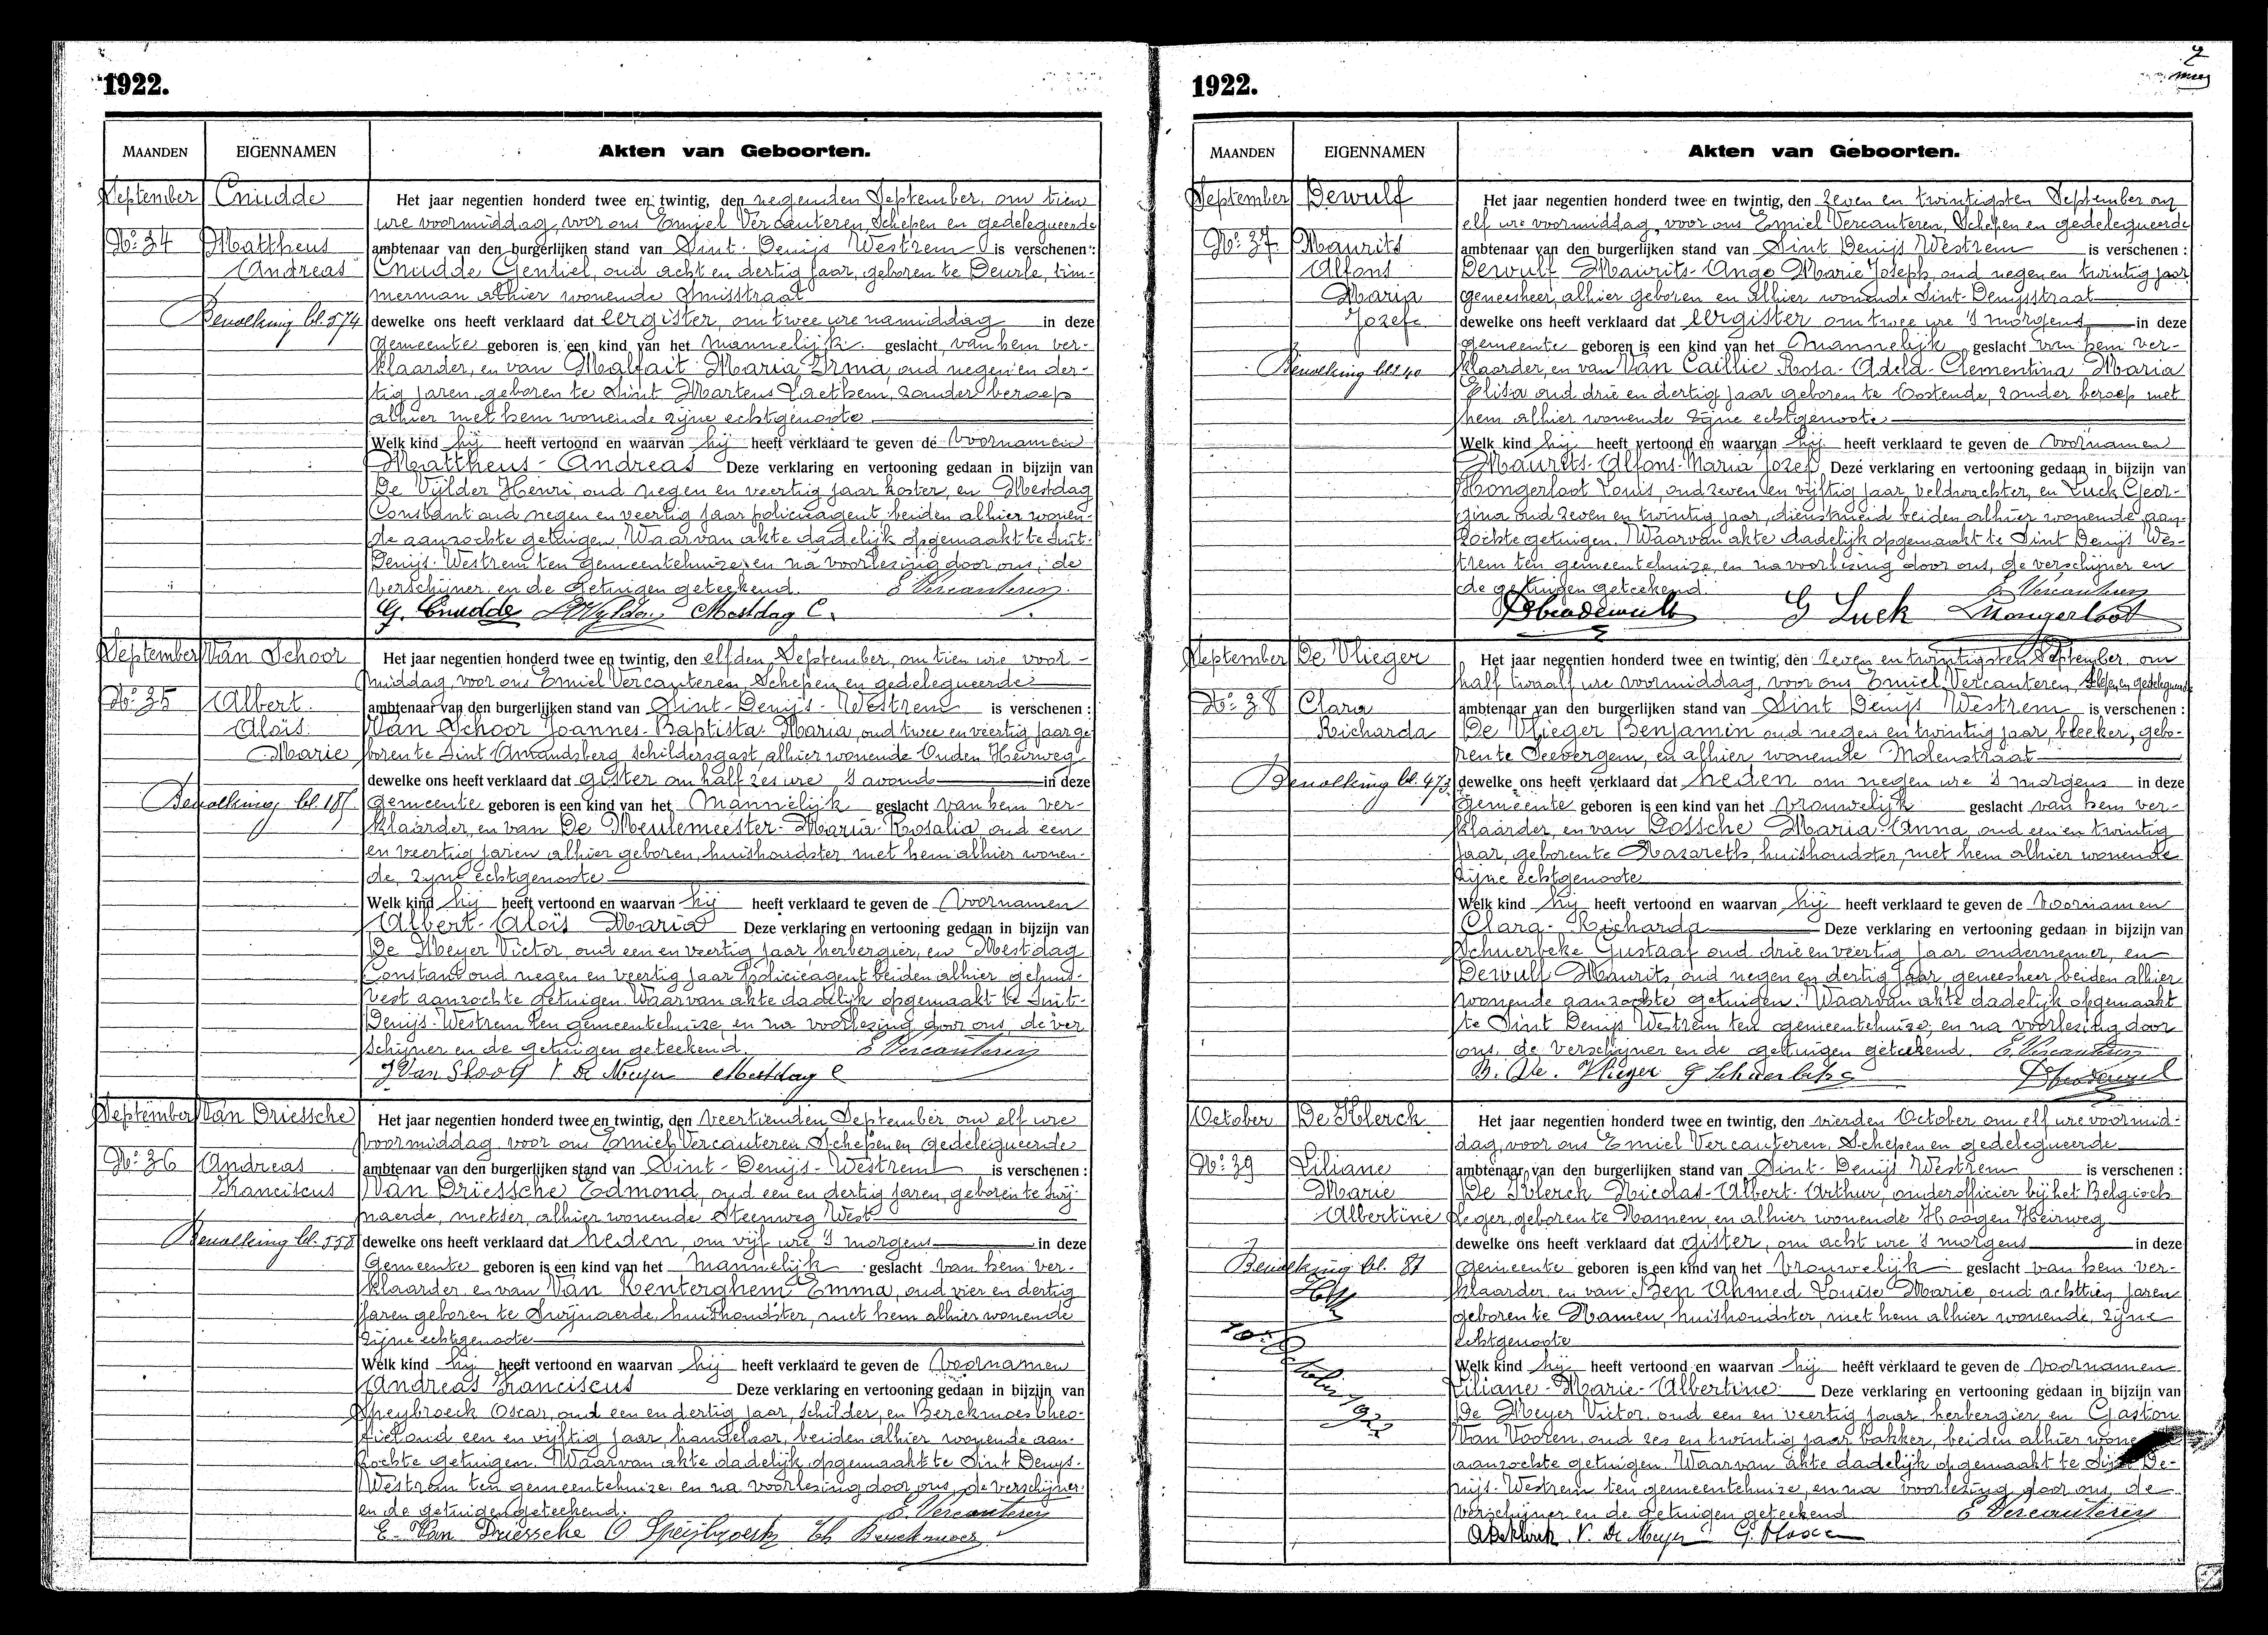 1922.
MAANDEN EIGENNAMEN Akten van Geboorten.
September Cnudde Het jaar negentien honderd twee en twintig, den negenden September, om tien
ure voormiddag, voor ons Emiel Vercauteren, Schepen en gedelegueerde
No. 34 Mattheus ambtenaar van den burgerlijken stand van Sint-Denijs Westrem is verschenen:
Andreas Cnudde Gentiel, oud acht en dertig jaar, geboren te Deurle, tim-
merman alhier wonende Smisstraat
Bevolking bl. 574 dewelke ons heeft verklaard dat eergister, om twee ure namiddag in deze
Gemeente geboren is een kind van het mannelijk geslacht, van hem ver-
klaarder, en van Malfait Maria Irma, oud negen en der-
tig jaren, geboren te Sint Martens Laethem, zonder beroep
alhier met hem wonende zijne echtgenoote
Welk kind hij heeft vertoond en waarvan hij heeft verklaard te geven de Voornamen
Mattheus-Andreas Deze verklaring en vertooning gedaan in bijzijn van
De Vijlder Henri, oud negen en veertig jaar koster, en Mestdag
Constant oud negen en veertig jaar policieagent beiden alhier wonen-
de aanzochte getuigen. Waarvan akte dadelijk opgemaakt te Sint-
Denijs-Westrem ten gemeentehuize, en na voorlezing door ons, de
verschijner en de getuigen geteekend. E Vercauteren
G. Cnudde Mestdag C.
September Van Schoor Het jaar negentien honderd twee en twintig, den elfden September, om tien ure voor-
middag, voor ons Emiel Vercauteren, Schepen en gedelegueerde
No. 35 Albert ambtenaar van den burgerlijken stand van Sint-Denijs-Westrem is verschenen:
Aloïs Van Schoor Joannes-Baptista-Maria, oud twee en veertig jaar ge
Marie boren te Sint Amandsberg schildersgast, alhier wonende Ouden Heirweg
dewelke ons heeft verklaard dat gister om half zes ure 's avonds in deze
Bevolking bl. 185 Gemeente geboren is een kind van het Mannelijk geslacht van hem ver-
klaarder, en van De Meulemeester-Maria-Rosalia, oud een
en veertig jaren alhier geboren, huishoudster met hem alhier wonen-
de, zijne echtgenoote
Welk kind hij heeft vertoond en waarvan hij heeft verklaard te geven de Voornamen
Albert-Aloïs Maria Deze verklaring en vertooning gedaan in bijzijn van
De Meyer Victor, oud een en veertig jaar, herbergier, en Mestdag
Constant oud negen en veertig jaar policieagent beiden alhier gehuis-
vest aanzochte getuigen. Waarvan akte dadelijk opgemaakt te Sint-
Denijs-Westrem ten gemeentehuize, en na voorlezing door ons, de ver
schijner en de getuigen geteekend. E Vercauteren
J Van Shoor V De Meyer Mestdag C
September Van Driessche Het jaar negentien honderd twee en twintig, den veertienden September om elf ure
voormiddag voor ons Emiel Vercauteren Schepen en gedelegueerde
No. 36 Andreas ambtenaar van den burgerlijken stand van Sint-Denijs-Westrem is verschenen:
Franciscus Van Driessche Edmond, oud een en dertig jaren, geboren te Swij-
naerde, metser, alhier wonende Steenweg West
Bevolking bl. 558 dewelke ons heeft verklaard dat heden, om vijf ure 's morgens in deze
Gemeente geboren is een kind van het mannelijk geslacht van hem ver-
klaarder en van Van Renterghem Emma, oud vier en dertig
jaren geboren te Swijnaerde, huishoudster, met hem alhier wonende
zijne echtgenoote
Welk kind hij heeft vertoond en waarvan hij heeft verklaard te geven de Voornamen
Andreas Franciscus Deze verklaring en vertooning gedaan in bijzijn van
Speybroeck Oscar, oud een en dertig jaar, schilder, en Berckmoes Theo-
fiel oud een en vijftig jaar, handelaar, beiden alhier wonende aan-
zochte getuigen. Waarvan akte dadelijk opgemaakt te Sint Denijs-
Westrem ten gemeentehuize, en na voorlezing door ons, de verschijner
en de getuigen geteekend. E. Vercauteren
E. Van Driessche O Speijbroeck Th Berckmoes
1922.
MAANDEN EIGENNAMEN Akten van Geboorten.
September Dewulf Het jaar negentien honderd twee en twintig, den zeven en twintigsten September om
elf ure voormiddag, voor ons Emiel Vercauteren, Schepen en gedelegueerde
No. 37 Maurits ambtenaar van den burgerlijken stand van Sint Denijs Westrem is verschenen:
Alfons Dewulf Maurits-Ange Marie Joseph, oud negen en twintig jaar
Maria geneesheer, alhier geboren en alhier wonende Sint-Denysstraat
Jozef dewelke ons heeft verklaard dat eergister om twee ure 's morgens in deze
gemeente geboren is een kind van het Mannelijk geslacht van hem ver-
Bevolking bl 240 klaarder, en van Van Caillie Rosa-Adela-Clementina Maria
Elisa oud drie en dertig jaar geboren te Oostende, zonder beroep met
hem alhier wonende zijne echtgenoote
Welk kind hij heeft vertoond en waarvan hij heeft verklaard te geven de Voornamen
Maurits-Alfons-Maria Jozef Deze verklaring en vertooning gedaan in bijzijn van
Mongerloot Louis, oud zeven en vijftig jaar veldwachter, en Luck Geor-
gina oud zeven en twintig jaar, dienstmeid beiden alhier wonende aan-
zochte getuigen. Waarvan akte dadelijk opgemaakt te Sint Denijs Wes-
trem ten gemeentehuize, en na voorlezing door ons, de verschijner en
de getuigen geteekend. E Vercauteren
G Luck Mongerloot
September De Vlieger Het jaar negentien honderd twee en twintig, den zeven en twintigsten September, om
half twaalf ure voormiddag, voor ons Emiel Vercauteren, Schepen, en gedelegueerde
No. 38 Clara ambtenaar van den burgerlijken stand van Sint Denijs Westrem is verschenen:
Richarda De Vlieger Benjamin oud negen en twintig jaar, bleeker, gebo-
ren te Seevergem, en alhier wonende Molenstraat
Bevolking bl. 473 dewelke ons heeft verklaard dat heden om negen ure 's morgens in deze
Gemeente geboren is een kind van het Vrouwelijk geslacht van hem ver-
klaarder, en van Gossche Maria-Anna, oud een en twintig
jaar, geboren te Nazareth, huishoudster, met hem alhier wonende
zijne echtgenoote
Welk kind hij heeft vertoond en waarvan hij heeft verklaard te geven de Voornamen
Clara-Richarda Deze verklaring en vertooning gedaan in bijzijn van
Schuerbeke Gustaaf oud drie en veertig jaar ondernemer, en
Dewulf Maurits, oud negen en dertig jaar, geneesheer, beiden alhier
wonende aanzochte getuigen. Waarvan akte dadelijk opgemaakt
te Sint Denijs Westrem ten gemeentehuize, en na voorlezing door
ons, de verschijner en de getuigen geteekend. E. Vercauteren
B. De. Vlieger G Schuerbeke
October De Klerck Het jaar negentien honderd twee en twintig, den vierden October om elf ure voormid-
dag, voor ons Emiel Vercauteren, Schepen en gedelegueerde
No. 39 Liliane ambtenaar van den burgerlijken stand van Sint-Denijs Westrem is verschenen:
Marie De Klerck Nicolas-Albert-Arthur, onderofficier bij het Belgisch
Albertine leger, geboren te Namen, en alhier wonende Hoogen Heirweg
dewelke ons heeft verklaard dat gister, om acht ure 's morgens in deze
Bevolking bl. 81 Gemeente geboren is een kind van het Vrouwelijk geslacht van hem ver-
klaarder, en van Ben Ahmed Louise Marie, oud achttien jaren
geboren te Namen, huishoudster, met hem alhier wonende, zijne
echtgenoote
Welk kind hij heeft vertoond en waarvan hij heeft verklaard te geven de voornamen
Liliane-Marie-Albertine Deze verklaring en vertooning gedaan in bijzijn van
1922 De Meyer Victor, oud een en veertig jaar, herbergier en Gaston
Van Vooren, oud zes en twintig jaar bakker, beiden alhier
aanzochte getuigen. Waarvan akte dadelijk opgemaakt te Sint De-
nijs-Westrem ten gemeentehuize, en na voorlezing door ons, de
verschijner en de getuigen geteekend E Vercauteren
V. De Meyer